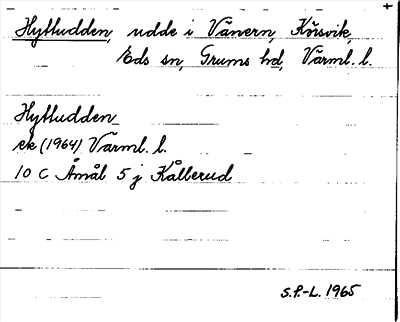 Hyttudden, udde i Vänern, Korsvik,
Eds sn, Grums hd, Värml. l.
Hyttudden
ek (1964) Värml. l.
10 C Åmål 5 j Kålberud
S.P.-L. 1965